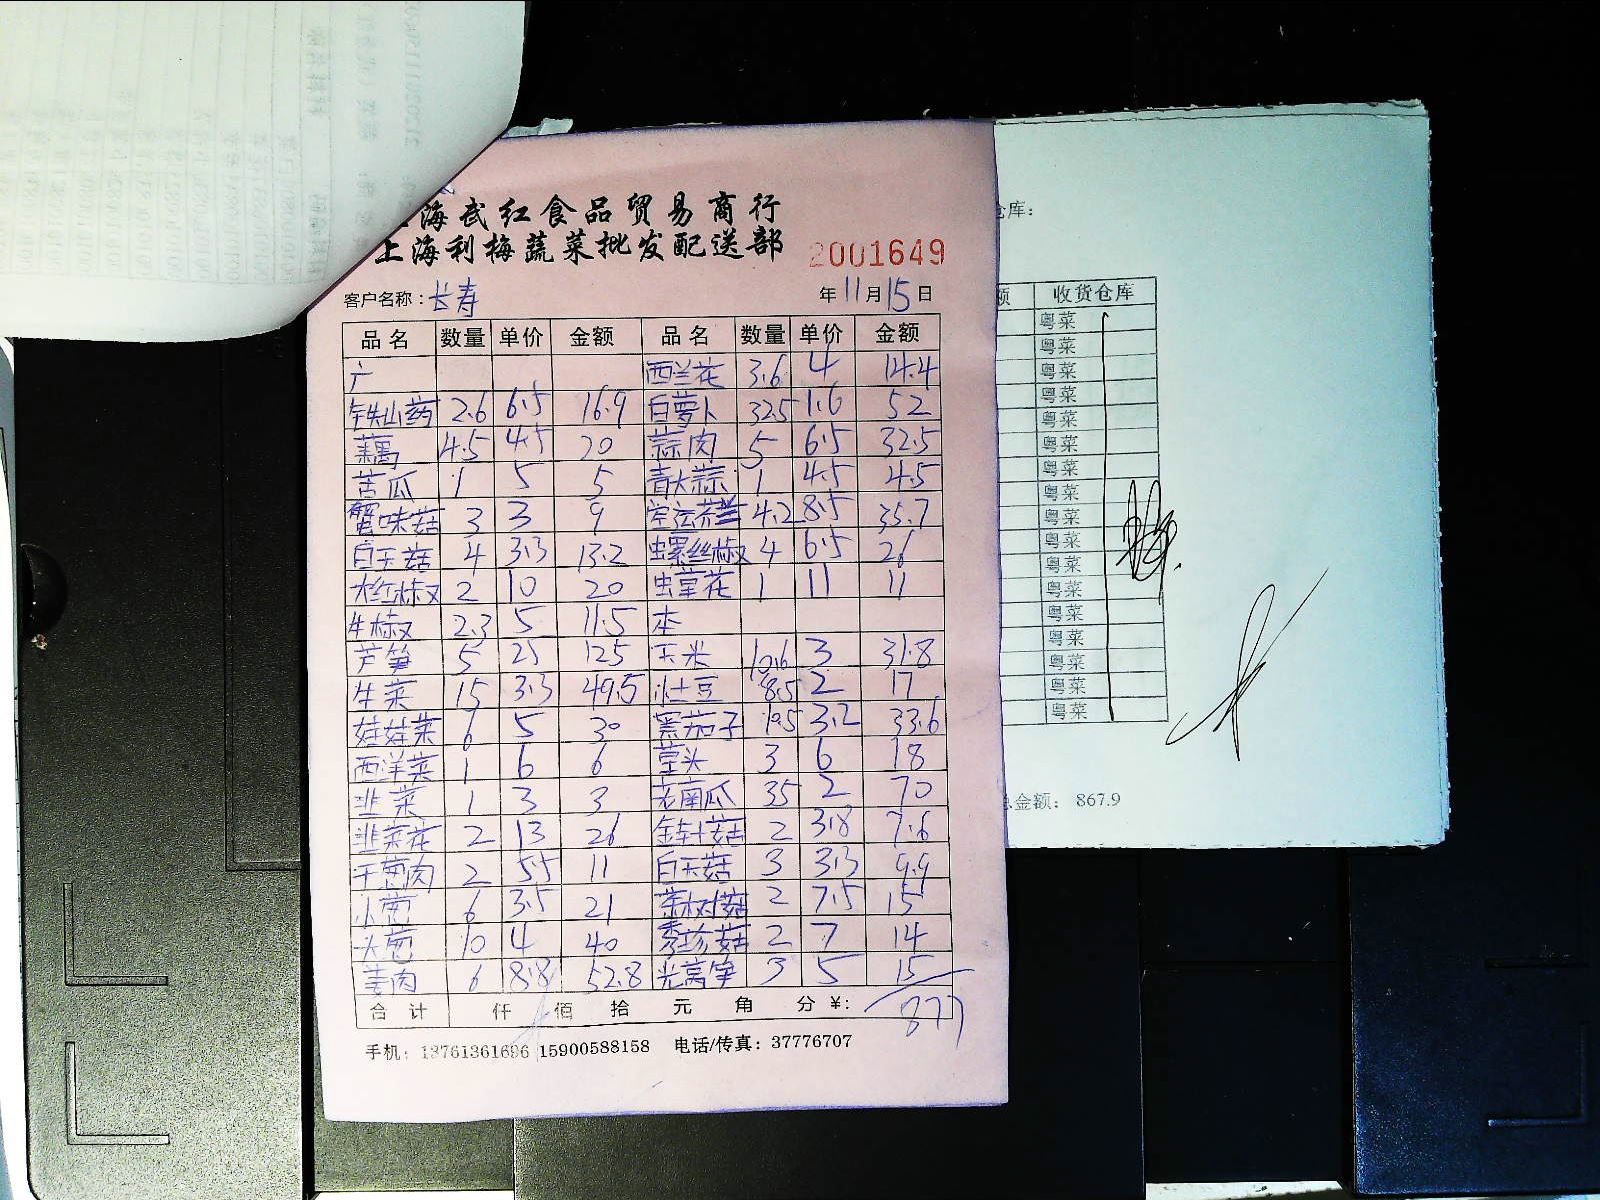 海武红食品贸易商行
上海利梅蔬菜批发配送部
2001649
客户名称：长寿 年11月15日
品名 数量 单价 金额 品名 数量 单价 金额
广 西兰花 3.6 4 14.4
铁山药 2.6 6.5 16.9 白萝卜 32.5 1.6 52
藕 4.5 4.5 20 蒜肉 5 6.5 32.5
苦瓜 1 5 5 青大蒜 1 4.5 4.5
蟹味菇 3 3 9 4.2 8.5 35.7
白玉菇 4 3.3 13.2 螺丝椒 4 6.5 26
大红椒 2 10 20 虫草花 1 11 11
牛椒 2.3 5 11.5 本
芦笋 5 25 125 玉米 10.6 3 31.8
生菜 15 3.3 49.5 小土豆 8.5 2 17
娃娃菜 6 5 30 黑茄子 10.5 3.2 33.6
西洋菜 1 6 6 3 6 18
韭菜 1 3 3 老南瓜 35 2 70
韭菜花 2 13 26 金针菇 2 3.8 7.6
干葱肉 2 5.5 11 白玉菇 3 3.3 9.9
小葱 6 3.5 21 茶树菇 2 7.5 15
大葱 10 4 40 秀珍菇 2 7 14
姜肉 6 8.8 52.8 光莴笋 3 5 15
合计 仟 佰 拾 元 角 分 ¥: 877
手机：13761361696 15900588158 电话/传真：37776707
仓库：
额 收货仓库
粤菜
粤菜
粤菜
粤菜
粤菜
粤菜
粤菜
粤菜
粤菜
粤菜
粤菜
粤菜
粤菜
粤菜
粤菜
粤菜
粤菜
总金额： 867.9